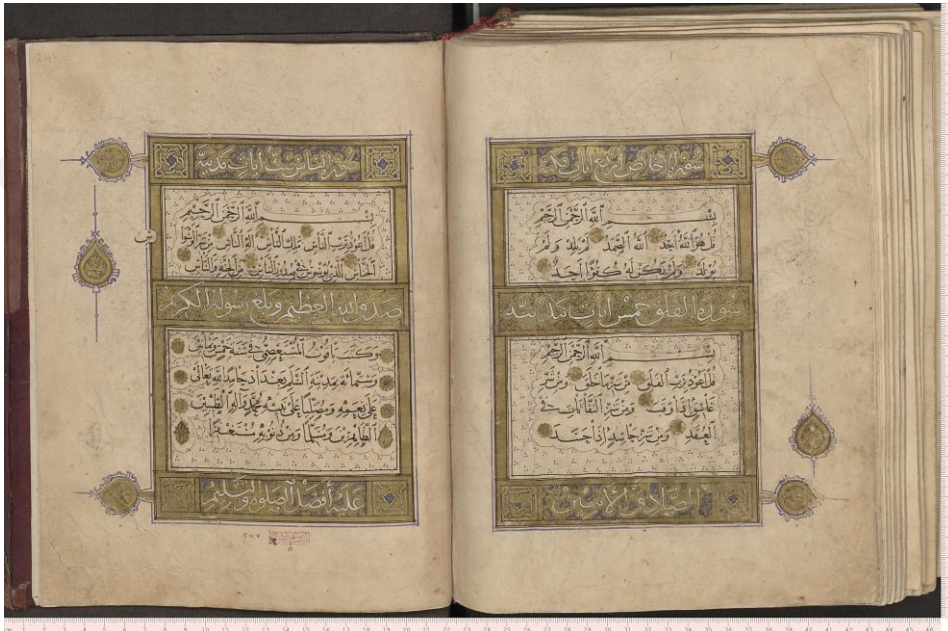 سورة الاخلاص اربع ايات مكية
بِسْمِ اللَّهِ الرَّحْمَٰنِ الرَّحِيمِ
قُلْ هُوَ اللَّهُ أَحَدٌ اللَّهُ الصَّمَدُ لَمْ يَلِدْ وَلَمْ
يُولَدْ وَلَمْ يَكُنْ لَهُ كُفُوًا أَحَدٌ
سورة الفلق خمس ايات
بِسْمِ اللَّهِ الرَّحْمَٰنِ الرَّحِيمِ
قُلْ أَعُوذُ بِرَبِّ الْفَلَقِ مِنْ شَرِّ مَا خَلَقَ وَمِنْ شَرِّ
غَاسِقٍ إِذَا وَقَبَ وَمِنْ شَرِّ النَّفَّاثَاتِ فِي
الْعُقَدِ وَمِنْ شَرِّ حَاسِدٍ إِذَا حَسَدَ
الصادق الامين
سورة الناس ست ايات مدنية
بِسْمِ اللَّهِ الرَّحْمَٰنِ الرَّحِيمِ
قُلْ أَعُوذُ بِرَبِّ النَّاسِ مَلِكِ النَّاسِ إِلَٰهِ النَّاسِ مِنْ شَرِّ الْوَسْوَاسِ
الْخَنَّاسِ الَّذِي يُوَسْوِسُ فِي صُدُورِ النَّاسِ مِنَ الْجِنَّةِ وَالنَّاسِ
صدق الله العظيم وبلغ رسوله الكريم
وكتب ياقوت المستعصمي في سنة خمس وثمانين
وستمائة بمدينة السلم بغداد حامدا لله تعالى
على نعمه ومصليا على نبيه محمد واله الطيبين
الطاهرين ومسلما ومن ذنوبه مستغفرا
عليه أفضل الصلوة والتسليم